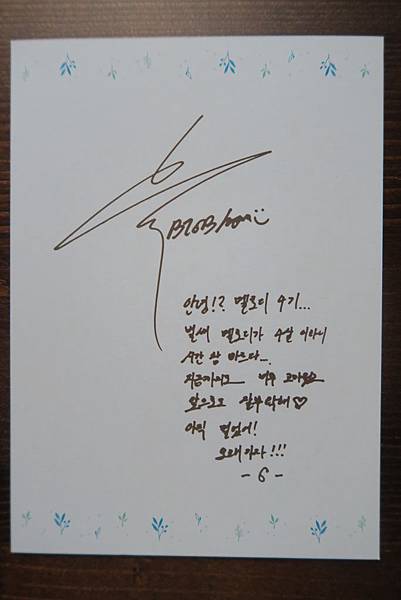 BTOB
안녕!? 멜로디 4기...
벌써 멜로디가 4살 이라니
시간 참 빠르다...
지금까지도 너무 고마웠고
앞으로도 잘부탁해♡
아직 멀었어!
오래가자!!!
- 6 -